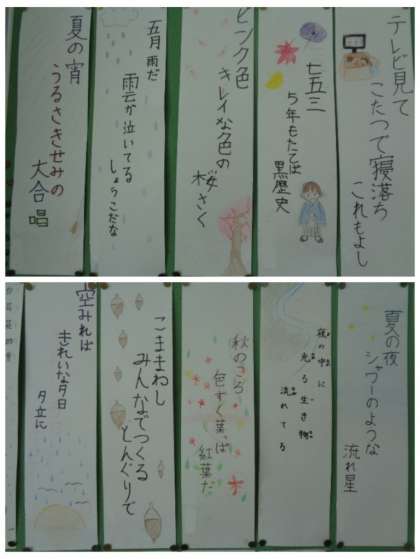 テレビ見て
こたつで寝落ち
これもよし
七五三
5年もたてば
黒歴史
ピンク色
キレイな色の
桜さく
五月雨だ
雲が泣いてる
しょうこだな
夏の宵
うるさきせみの
大合唱
夏の夜
シャワーのような
流れ星
夜の中に
光る生き物
流れてる
秋のころ
色づく葉っぱ
紅葉だ
こままわし
みんなでつくる
どんぐりで
空みれば
きれいな夕日
夕立に